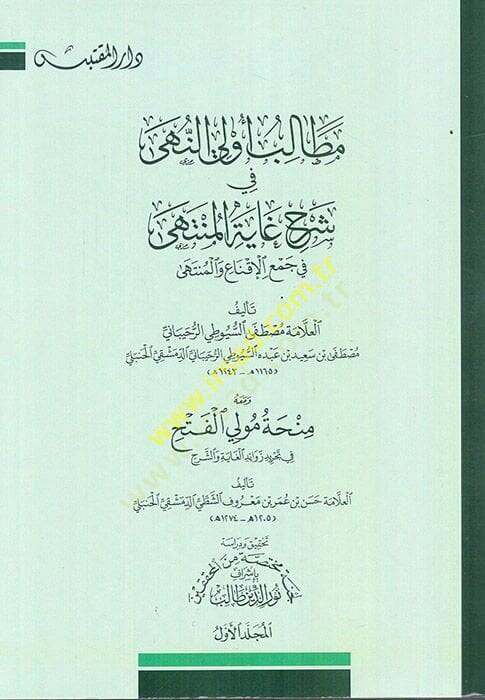 دار المقتبس
مَطَالِبُ أُولِي النُّهَى
فِي
شَرْحِ غَايَةِ الْمُنْتَهَى
فِي جَمْعِ الْإِقْنَاعِ وَالْمُنْتَهَى
تَأْلِيفُ
الْعَلَّامَة مُصْطَفَى السُّيُوطِي الرُّحَيْبَانِيّ
مُصْطَفَى بْن سَعِيد بْن عَبْده السُّيُوطِي الرُّحَيْبَانِيّ الدِّمَشْقِيّ الْحَنْبَلِيّ
(١١٦٥هـ - ١٢٤٣هـ)
وَمَعَهُ
مِنْحَةُ مُولِي الْفَتْحِ
فِي تَجْرِيدِ زَوَائِدِ الْغَايَةِ وَالشَّرْحِ
تَأْلِيفُ
الْعَلَّامَة حَسَن بْن عُمَر بْن مَعْرُوف الشَّطِّيّ الدِّمَشْقِيّ الْحَنْبَلِيّ
(١٢٠٥هـ - ١٢٧٤هـ)
تحقيق ودراسة
لجنة مختصة من المحققين
بإشراف
نور الدين طالب
المجلد الأول